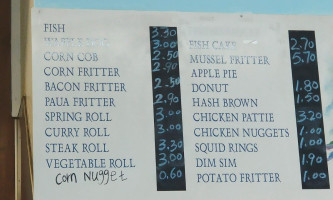 FISH 3.30
3.00
CORN COB 2.50
CORN FRITTER
BACON FRITTER 2.50
PAUA FRITTER 2.90
SPRING ROLL 3.00
CURRY ROLL 3.00
STEAK ROLL 3.30
VEGETABLE ROLL 3.00
Corn Nugget 0.60
FISH CAKE 2.70
MUSSEL FRITTER 5.70
APPLE PIE
DONUT 1.80
HASH BROWN 1.50
CHICKEN PATTIE 3.20
CHICKEN NUGGETS 1.00
SQUID RINGS 1.00
DIM SIM 1.90
POTATO FRITTER 1.00